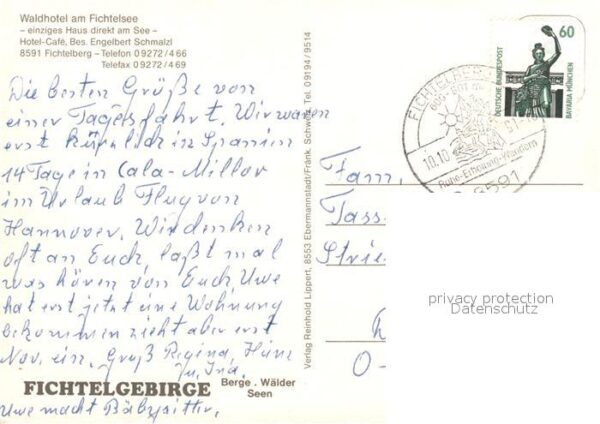 Waldhotel am Fichtelsee
– einziges Haus direkt am See –
Hotel-Café, Bes. Engelbert Schmalzl
8591 Fichtelberg – Telefon 0 92 72 / 4 66
Telefax 0 92 72 / 4 69
Die besten Grüße von
einer Tagesfahrt. Wir waren
erst kürzlich in Spanien
14 Tage in Cala-Millor
im Urlaub Flug von
Hannover. Wir denken
oft an Euch, laßt mal
was hören von Euch, Uwe
hat erst jetzt eine Wohnung
bekommen zieht aber erst
Nov. ein. Gruß Regina, Heinz
u. Ina.
FICHTELGEBIRGE
Berge . Wälder
Seen
Uwe macht Babysitter.
Verlag Reinhold Lippert, 8553 Ebermannstadt/Fränk. Schweiz, Tel. 0 91 94 / 95 14
60
DEUTSCHE BUNDESPOST
BAVARIA MÜNCHEN
10.10
Ruhe-Erholung-Wandern
8591
Fam.
Tass
Strie
O-
privacy protection
Datenschutz